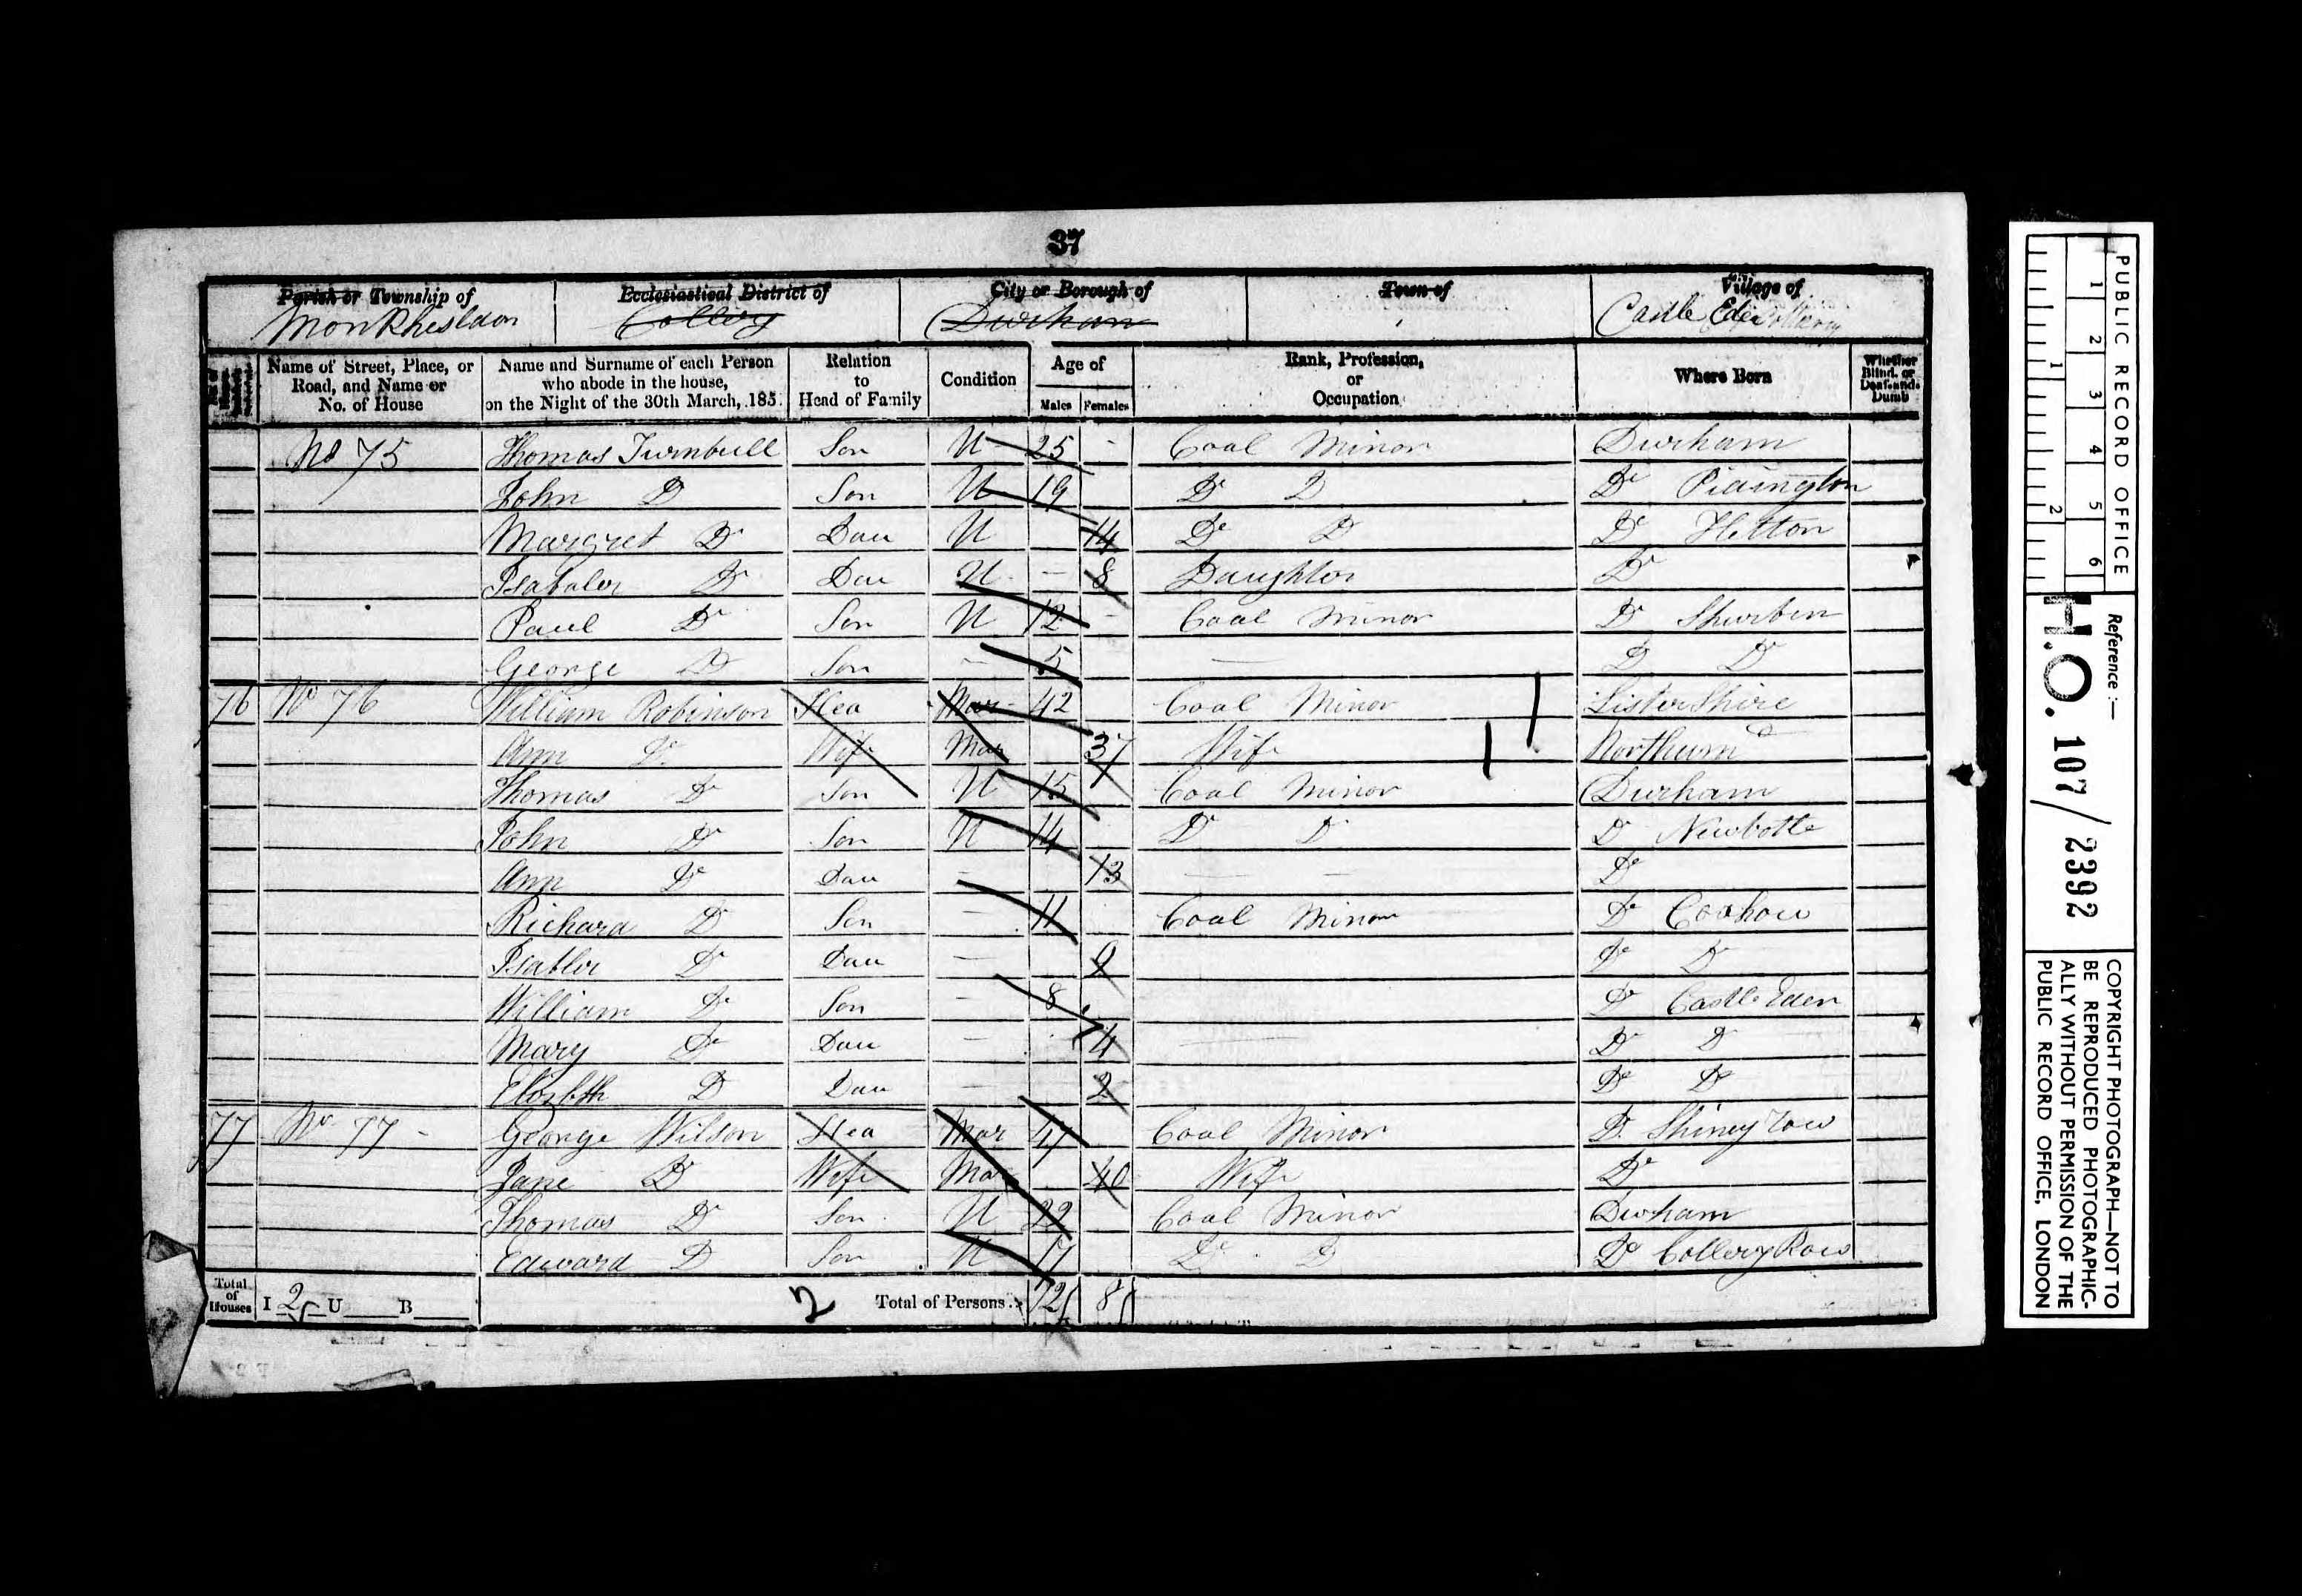 37
Parish or Township of
Monkhesldon
Ecclesiastical District of
Collery
City or Borough of
Durham
Town of
Village of
Castle Eden Collery
Name of Street, Place, or Road, and Name or No. of House
Name and Surname of each Person who abode in the house, on the Night of the 30th March, 185
Relation to Head of Family
Condition
Age of
Males Females
Rank, Profession, or Occupation
Where Born
Whether Blind, or Deaf-and-Dumb
No 75 Thomas Turnbull Son U 25 - Coal Minor Durham
John D Son U 19 Do D Do Pidington
Margret Do Dau U 14 Do D Do Hetton
Isabaler Do Dau U - 8 Daughter Do
Paul Do Son U 12 - Coal Minor Do Shurben
George D Son - 5 — D Do
76 No 76 William Robinson Hea Mar 42 Coal Minor Listershire
Ann Do Wife Mar 37 Wife Northumd
Thomas Do Son U 15 Coal Minor Durham
John Do Son U 14 Do D Do Newbotle
Ann Do Dau - 13 — — Do
Richard D Son - 11 Coal Minor Do Coxhow
Isabler Do Dau - 9 Do D
William Do Son - 8 Do Castle Eden
Mary Do Dau - 4 — Do D
Elozbth D Dau - 2 Do Do
77 No 77 - George Wilson Hea Mar 47 Coal Minor D. Shiney Row
Jane D Wife Mar 40 Wife Do
Thomas Do Son U 22 Coal Minor Durham
Edward D Son U 17 Do D Do Collery Row
Total of Houses I 2 U B
2
Total of Persons 12 8
PUBLIC RECORD OFFICE
1 2 3 4 5 6
1 2
Reference :—
H.O. 107/2392
COPYRIGHT PHOTOGRAPH—NOT TO
BE REPRODUCED PHOTOGRAPHIC-
ALLY WITHOUT PERMISSION OF THE
PUBLIC RECORD OFFICE, LONDON